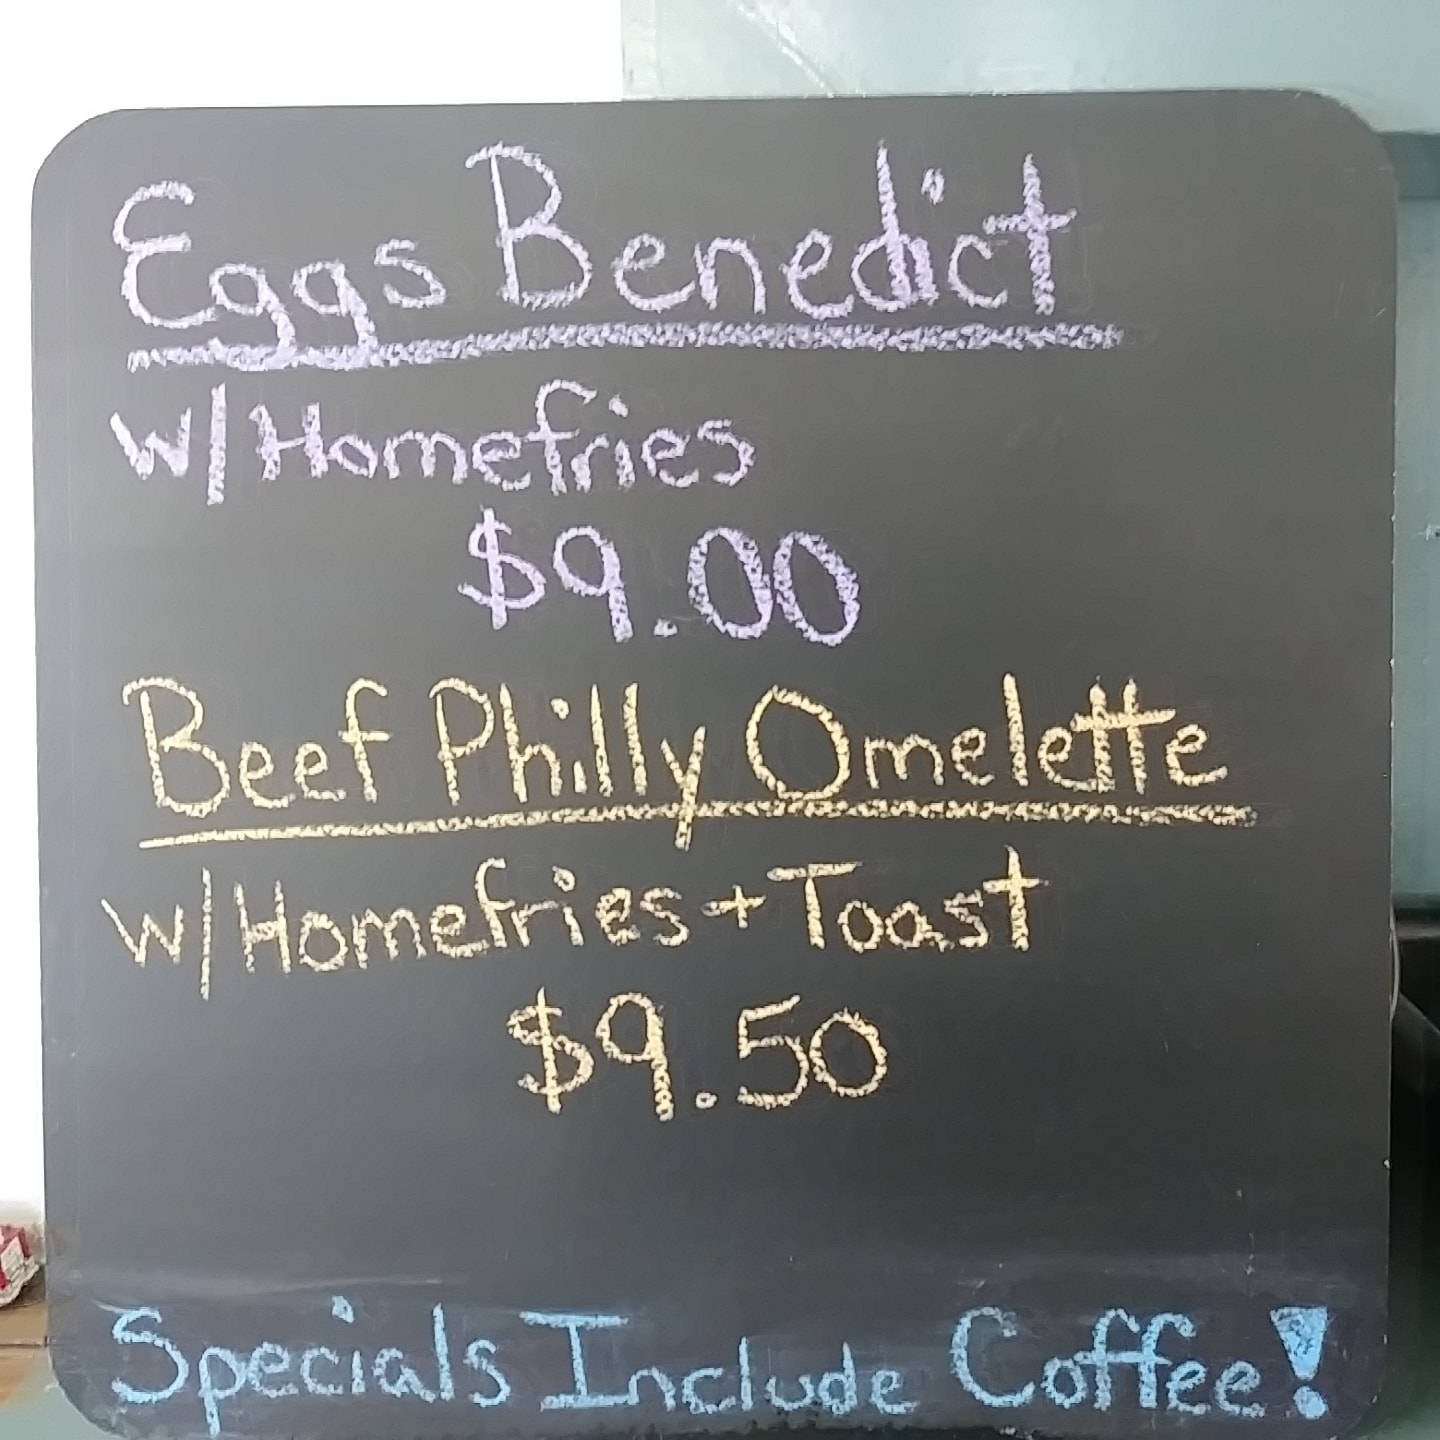 Eggs Benedict
w/Homefries
$9.00
Beef Philly Omelette
w/Homefries + Toast
$9.50
Specials Include Coffee!